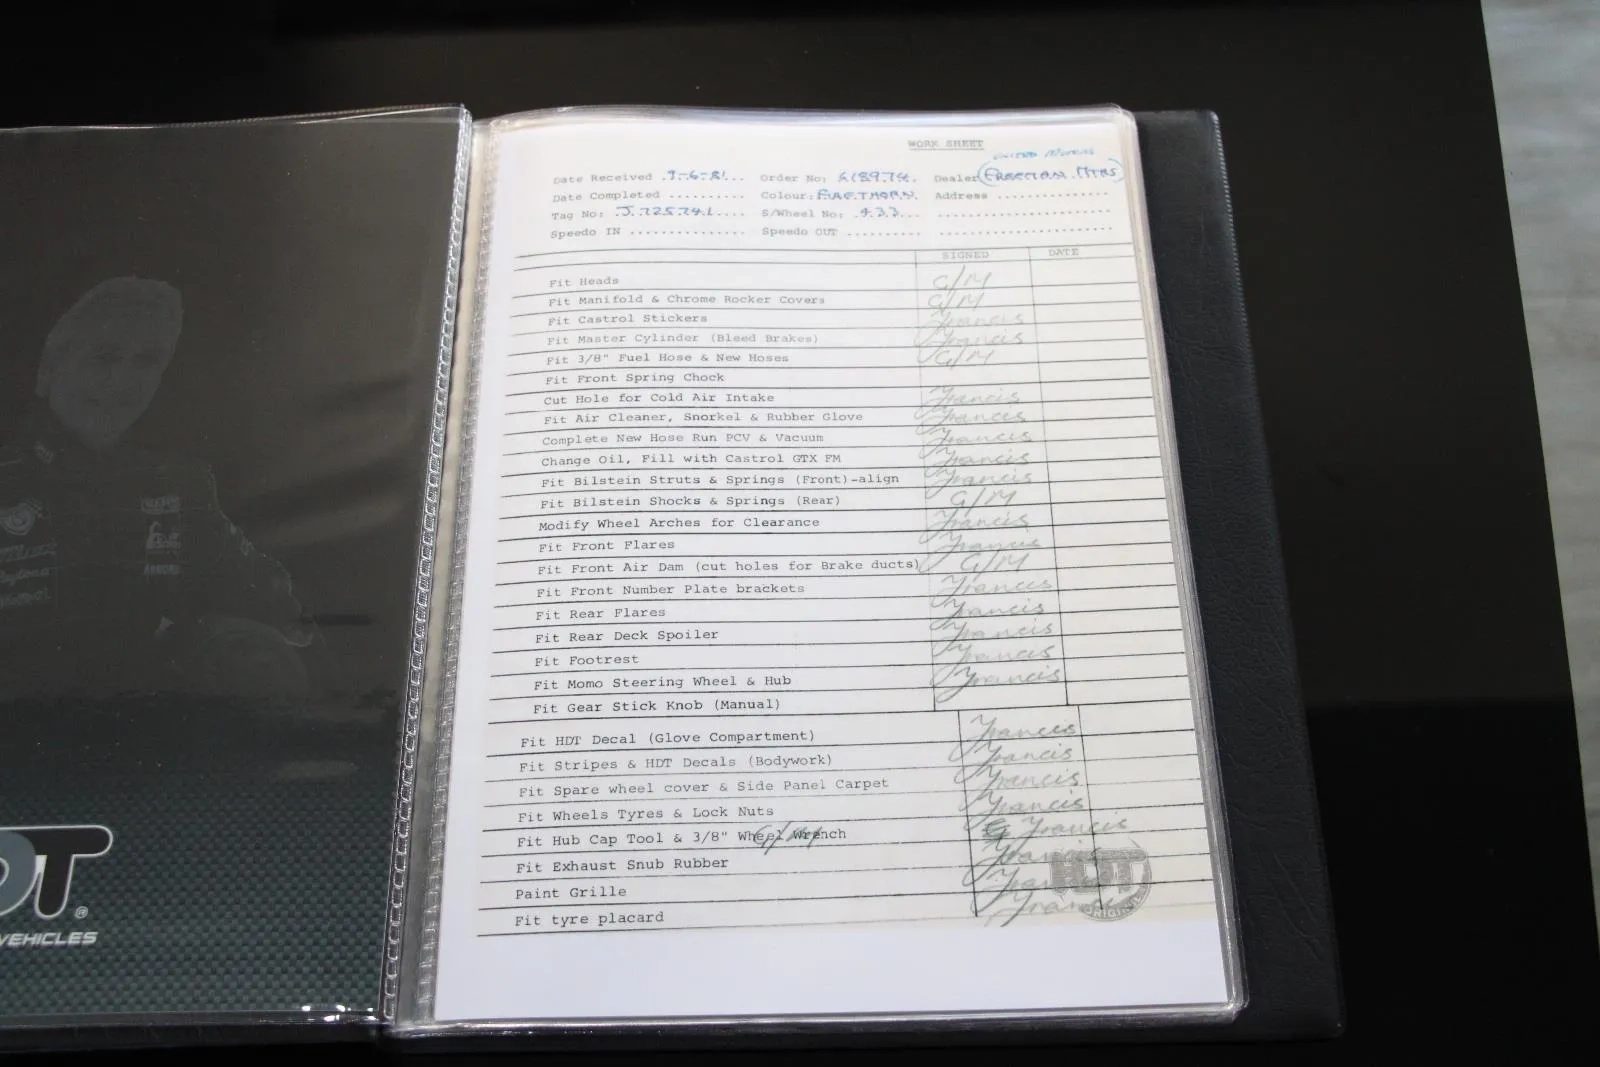 WORK SHEET
UNITED MOTORS
Date Received .9-6-81... Order No: 618974. Dealer
Date Completed .......... Colour: FIRETHORN. Address ...............
Tag No: .J.725741.... S/Wheel No: .433...
Speedo IN .............. Speedo OUT ..........
SIGNED DATE
Fit Heads G/M
Fit Manifold & Chrome Rocker Covers G/M
Fit Castrol Stickers Francis
Fit Master Cylinder (Bleed Brakes) Francis
Fit 3/8" Fuel Hose & New Hoses G/M
Fit Front Spring Chock
Cut Hole for Cold Air Intake Francis
Fit Air Cleaner, Snorkel & Rubber Glove Francis
Complete New Hose Run PCV & Vacuum Francis
Change Oil, Fill with Castrol GTX FM Francis
Fit Bilstein Struts & Springs (Front)-align Francis
Fit Bilstein Shocks & Springs (Rear) G/M
Modify Wheel Arches for Clearance Francis
Fit Front Flares Francis
Fit Front Air Dam (cut holes for Brake ducts) G/M
Fit Front Number Plate brackets Francis
Fit Rear Flares Francis
Fit Rear Deck Spoiler Francis
Fit Footrest Francis
Fit Momo Steering Wheel & Hub Francis
Fit Gear Stick Knob (Manual)
Fit HDT Decal (Glove Compartment) Francis
Fit Stripes & HDT Decals (Bodywork) Francis
Fit Spare wheel cover & Side Panel Carpet Francis
Fit Wheels Tyres & Lock Nuts Francis
Fit Hub Cap Tool & 3/8" Wheel Wrench G/M Francis
Fit Exhaust Snub Rubber Francis
Paint Grille Francis
Fit tyre placard Francis
HDT
ORIGINAL
DT®
VEHICLES